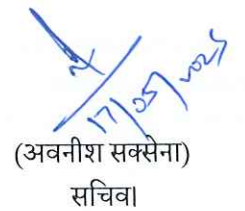 17/05/2025
(अवनीश सक्सेना)
सचिव।